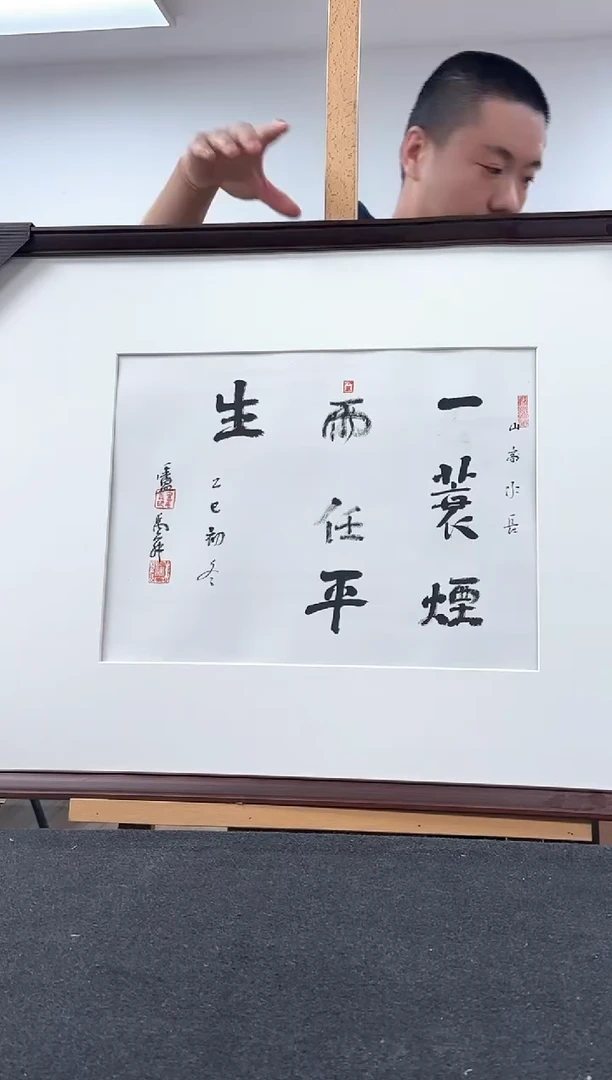 山高水長
一蓑煙
雨任平
生
乙巳初冬